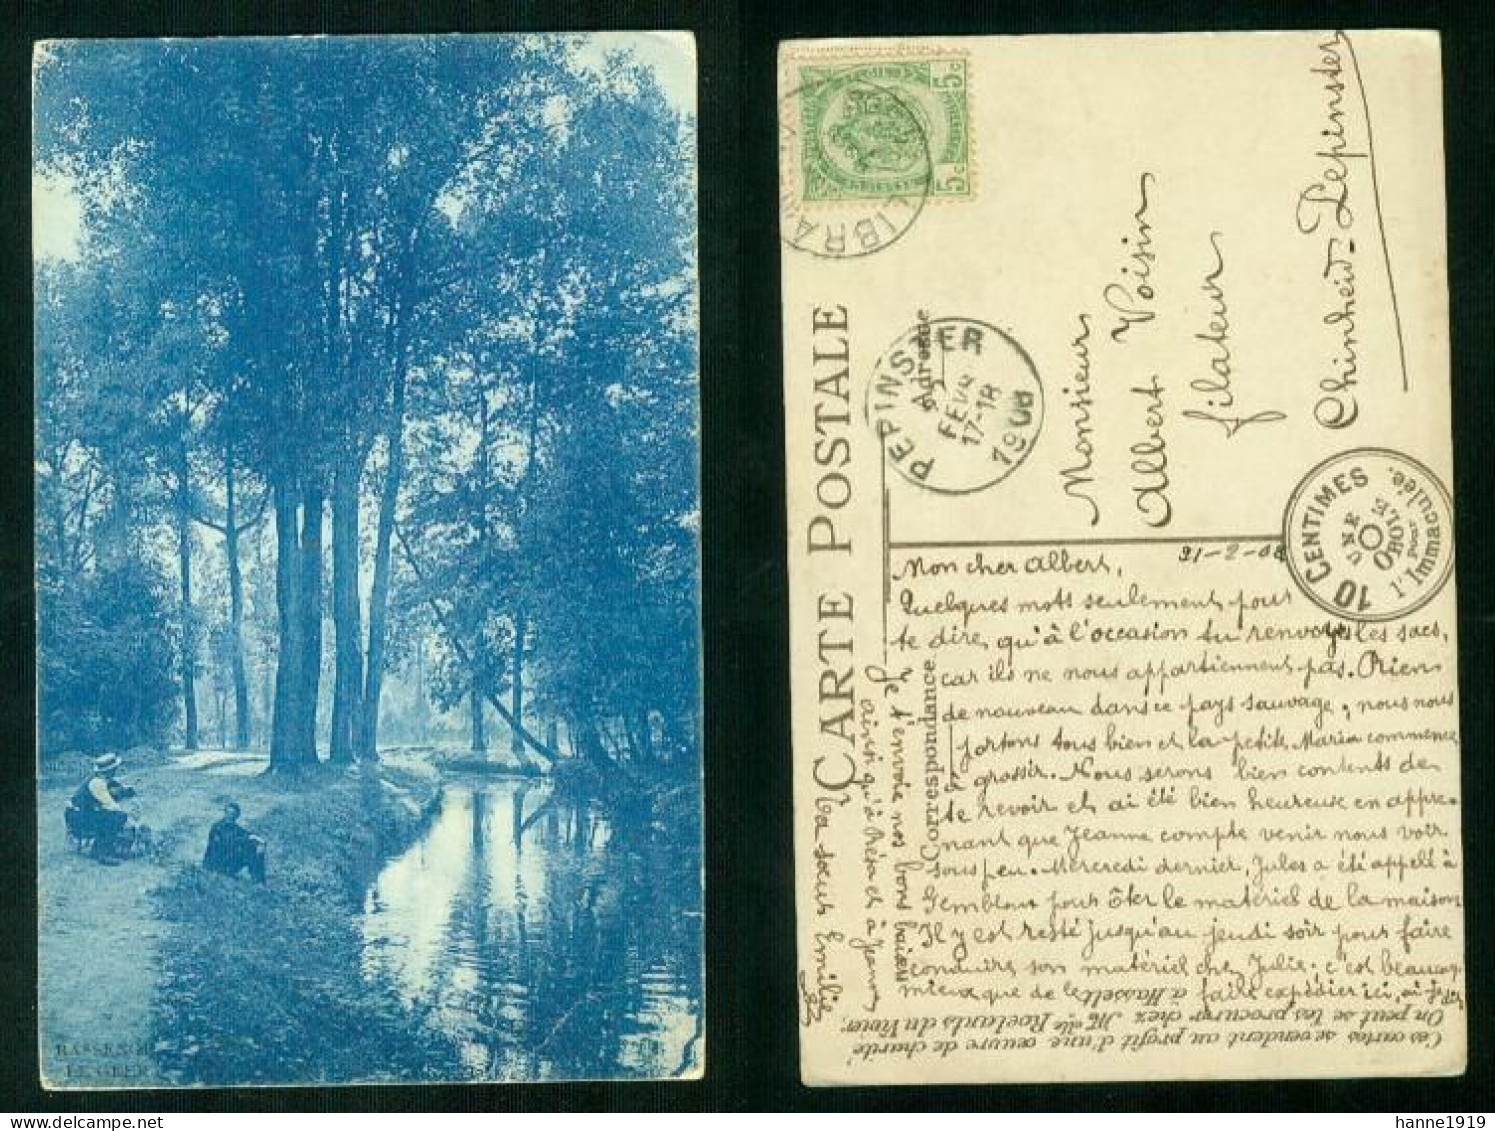 BASSENGE
LE GEER
CARTE POSTALE
Correspondance
Adresse
5 c
5 c
PEPINSTER
FEVR
17-18
1908
Monsieur
Albert Voisin
filateur
Chinheid-Pepinster
10 CENTIMES
UNE OBOLE
pour
l'Immaculée.
21-2-08
Mon cher Albert,
Quelques mots seulement pour
te dire, qu'à l'occasion tu renvoyes les sacs,
car ils ne nous appartiennent pas. Rien
de nouveau dans ce pays sauvage, nous nous
portons tous bien et la petite Maria commence
à grossir. Nous serons bien contents de
te revoir et ai été bien heureuse en appre-
nant que Jeanne compte venir nous voir
sous peu. Mercredi dernier, Jules a été appelé à
Gembloux pour ôter le matériel de la maison
Il y est resté jusqu'au jeudi soir pour faire
conduire son matériel chez Julie; c'est beaucoup
mieux que de le faire expédier ici,
Je t'envoie nos bons baisers
ainsi qu'à et à Jeanne
Ta sœur Emilie
Ces cartes se vendent au profit d'une œuvre de charité
On peut se les procurer chez Melle Roelants du Vivier,
à Hasselt
hanne1919